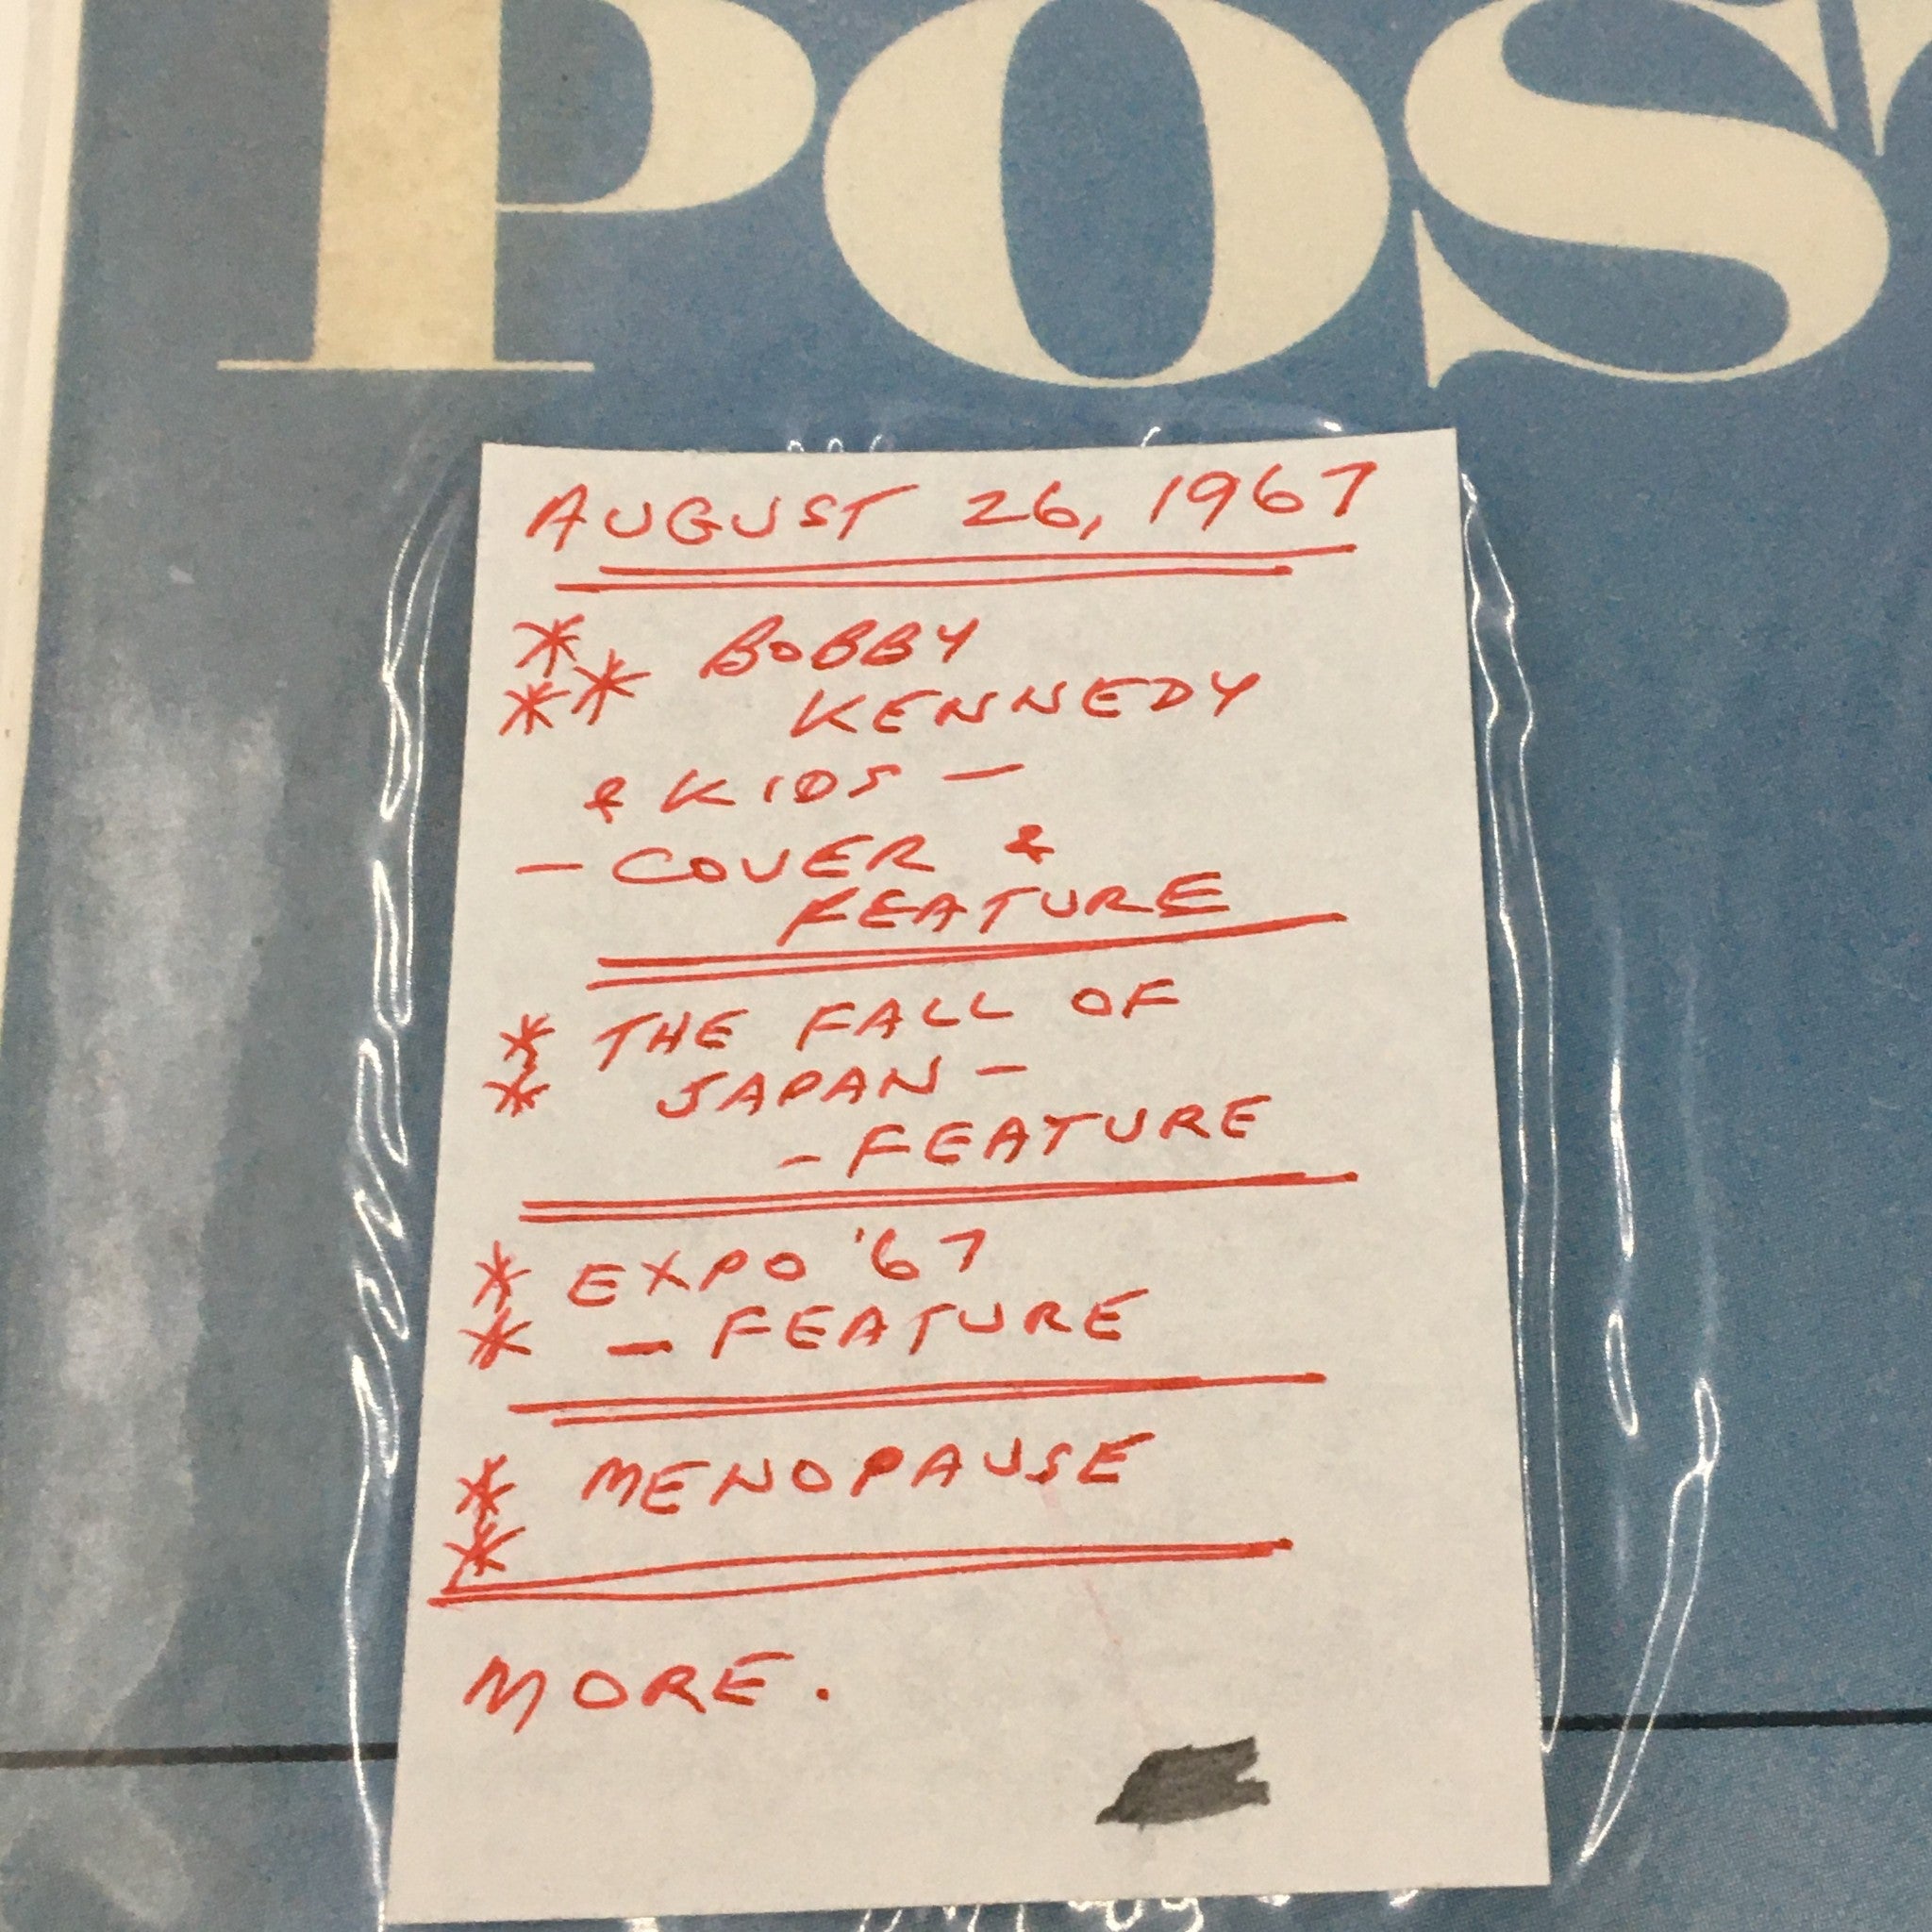 POS
AUGUST 26, 1967
* BOBBY
** KENNEDY
& KIDS —
— COVER &
FEATURE
* THE FALL OF
* JAPAN —
- FEATURE
* EXPO '67
* — FEATURE
* MENOPAUSE
*
MORE.